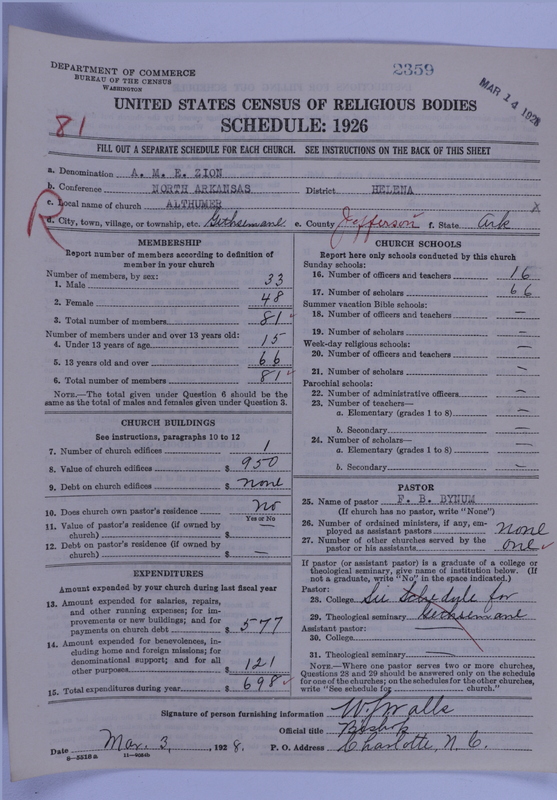 DEPARTMENT OF COMMERCE
BUREAU OF THE CENSUS
WASHINGTON
2359
MAR 14 1928
UNITED STATES CENSUS OF RELIGIOUS BODIES
SCHEDULE: 1926
81
FILL OUT A SEPARATE SCHEDULE FOR EACH CHURCH. SEE INSTRUCTIONS ON THE BACK OF THIS SHEET
a. Denomination A. M. E. ZION
b. Conference NORTH ARKANSAS District HELENA
c. Local name of church ALTHUMER x
R
d. City, town, village, or township, etc. Gethsemane e. County Jefferson f. State Ark
MEMBERSHIP
Report number of members according to definition of
member in your church
Number of members, by sex:
1. Male 33
2. Female 48
3. Total number of members 81
Number of members under and over 13 years old:
4. Under 13 years of age 15
5. 13 years old and over 66
6. Total number of members 81
NOTE.—The total given under Question 6 should be
same as the total of males and females given under Question 3.
CHURCH BUILDINGS
See instructions, paragraphs 10 to 12
7. Number of church edifices 1
8. Value of church edifices $ 950
9. Debt on church edifices $ none
10. Does church own pastor's residence no
Yes or No
11. Value of pastor's residence (if owned by
church) $ —
12. Debt on pastor's residence (if owned by
church) $ —
EXPENDITURES
Amount expended by your church during last fiscal year
13. Amount expended for salaries, repairs,
and other running expenses; for im-
provements or new buildings; and for
payments on church debt $ 577
14. Amount expended for benevolences, in-
cluding home and foreign missions; for
denominational support; and for all
other purposes $ 121
15. Total expenditures during year $ 698
CHURCH SCHOOLS
Report here only schools conducted by this church
Sunday schools:
16. Number of officers and teachers 16
17. Number of scholars 66
Summer vacation Bible schools:
18. Number of officers and teachers —
19. Number of scholars —
Week-day religious schools:
20. Number of officers and teachers —
21. Number of scholars —
Parochial schools:
22. Number of administrative officers —
23. Number of teachers—
a. Elementary (grades 1 to 8) —
b. Secondary —
24. Number of scholars—
a. Elementary (grades 1 to 8) —
b. Secondary —
PASTOR
25. Name of pastor F. B. BYNUM
(If church has no pastor, write "None")
26. Number of ordained ministers, if any, em-
ployed as assistant pastors none
27. Number of other churches served by the
pastor or his assistants one
If pastor (or assistant pastor) is a graduate of a college or
theological seminary, give name of institution below. (If
not a graduate, write "No" in the space indicated.)
Pastor:
28. College See Schedule for
29. Theological seminary Gethsemane
Assistant pastor: —
30. College
31. Theological seminary —
NOTE.—Where one pastor serves two or more churches,
Questions 28 and 29 should be answered only on the schedule
for one of the churches; on the schedules for the other churches,
write "See schedule for church."
Signature of person furnishing information W. J. Walls
Official title Bishop
Date Mar. 3, 1928. P. O. Address Charlotte, N. C.
6—5516 a 11—9054b